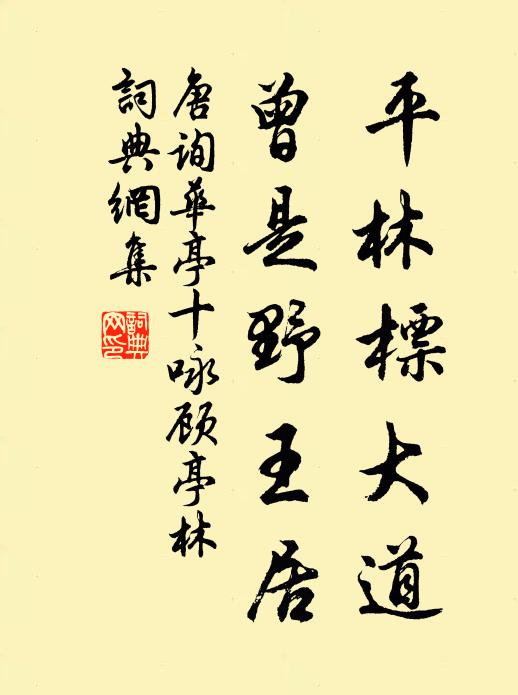 平林標大道
曾是野王居
唐詢華亭十咏顾亭林
詞典網集
詞典网印